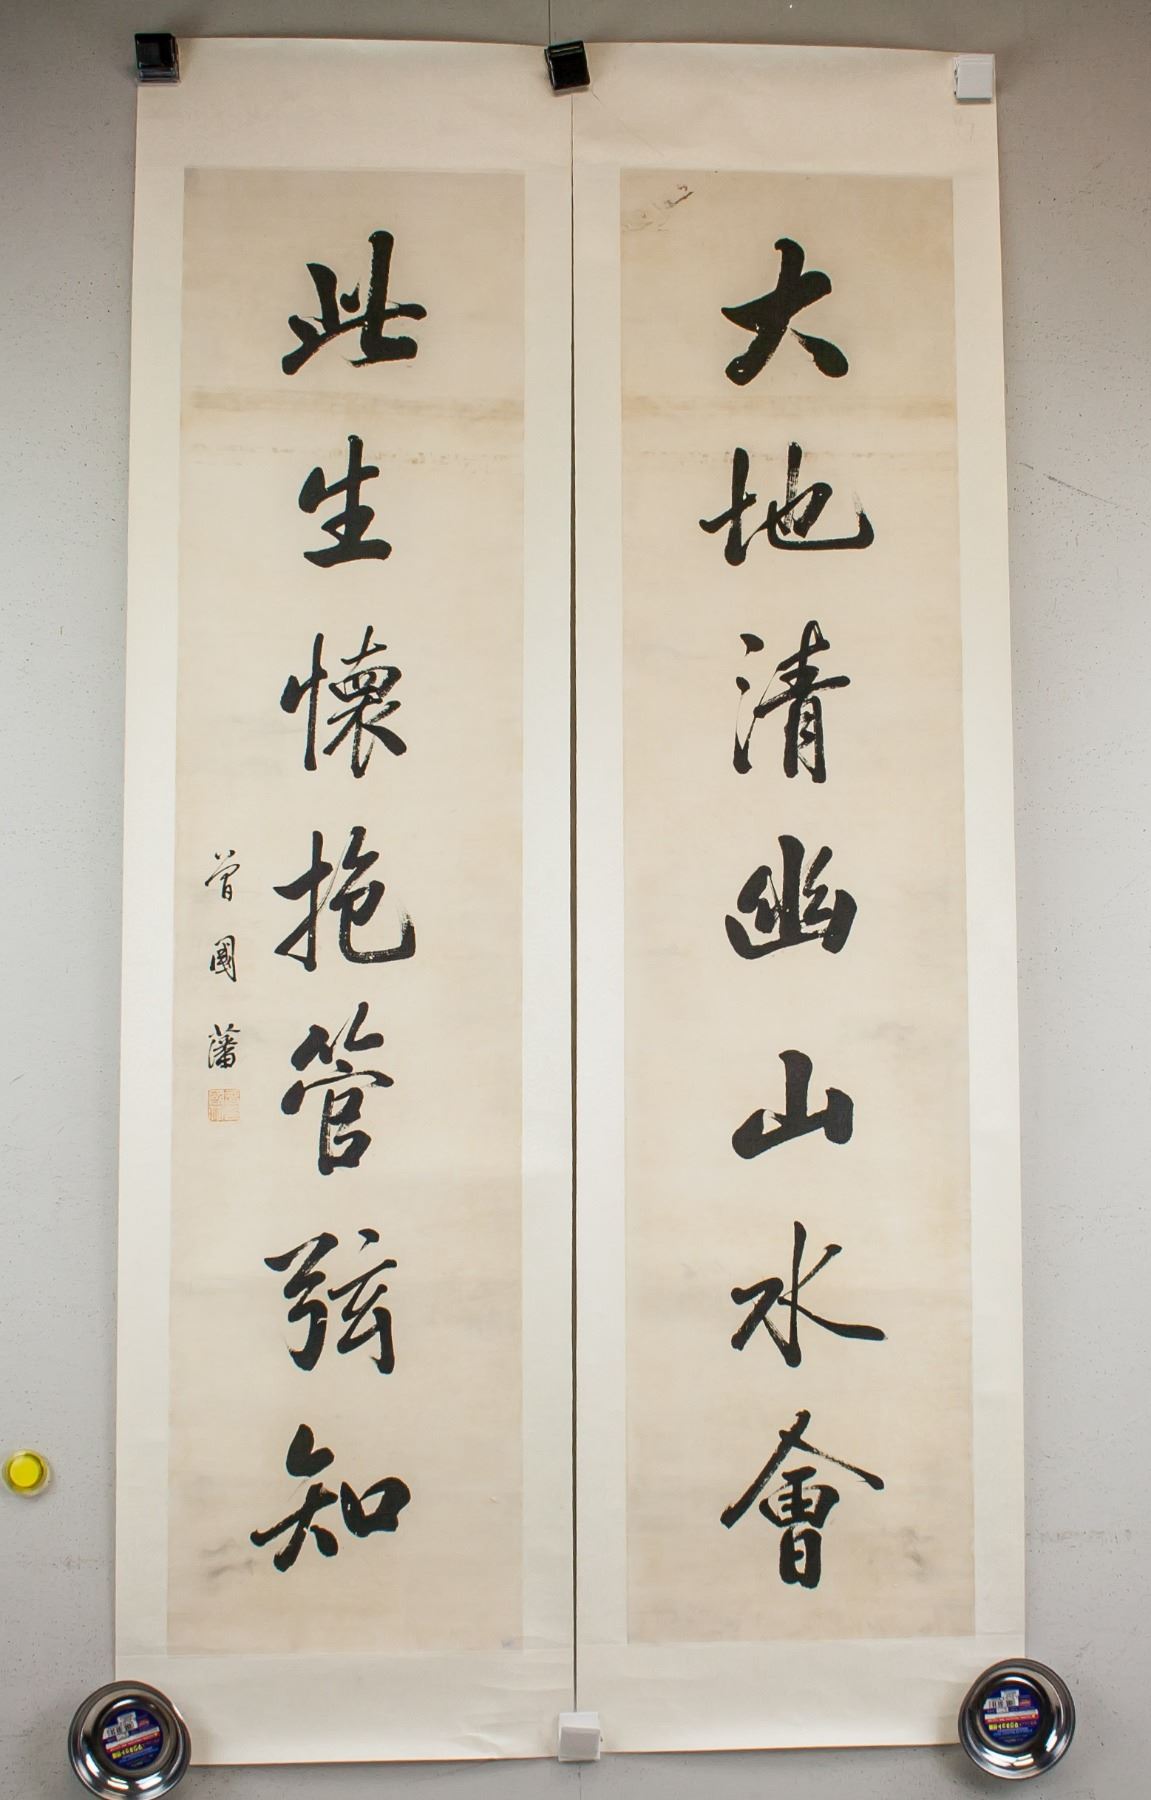 大地清幽山水會
此生懷抱管弦知
曾國藩